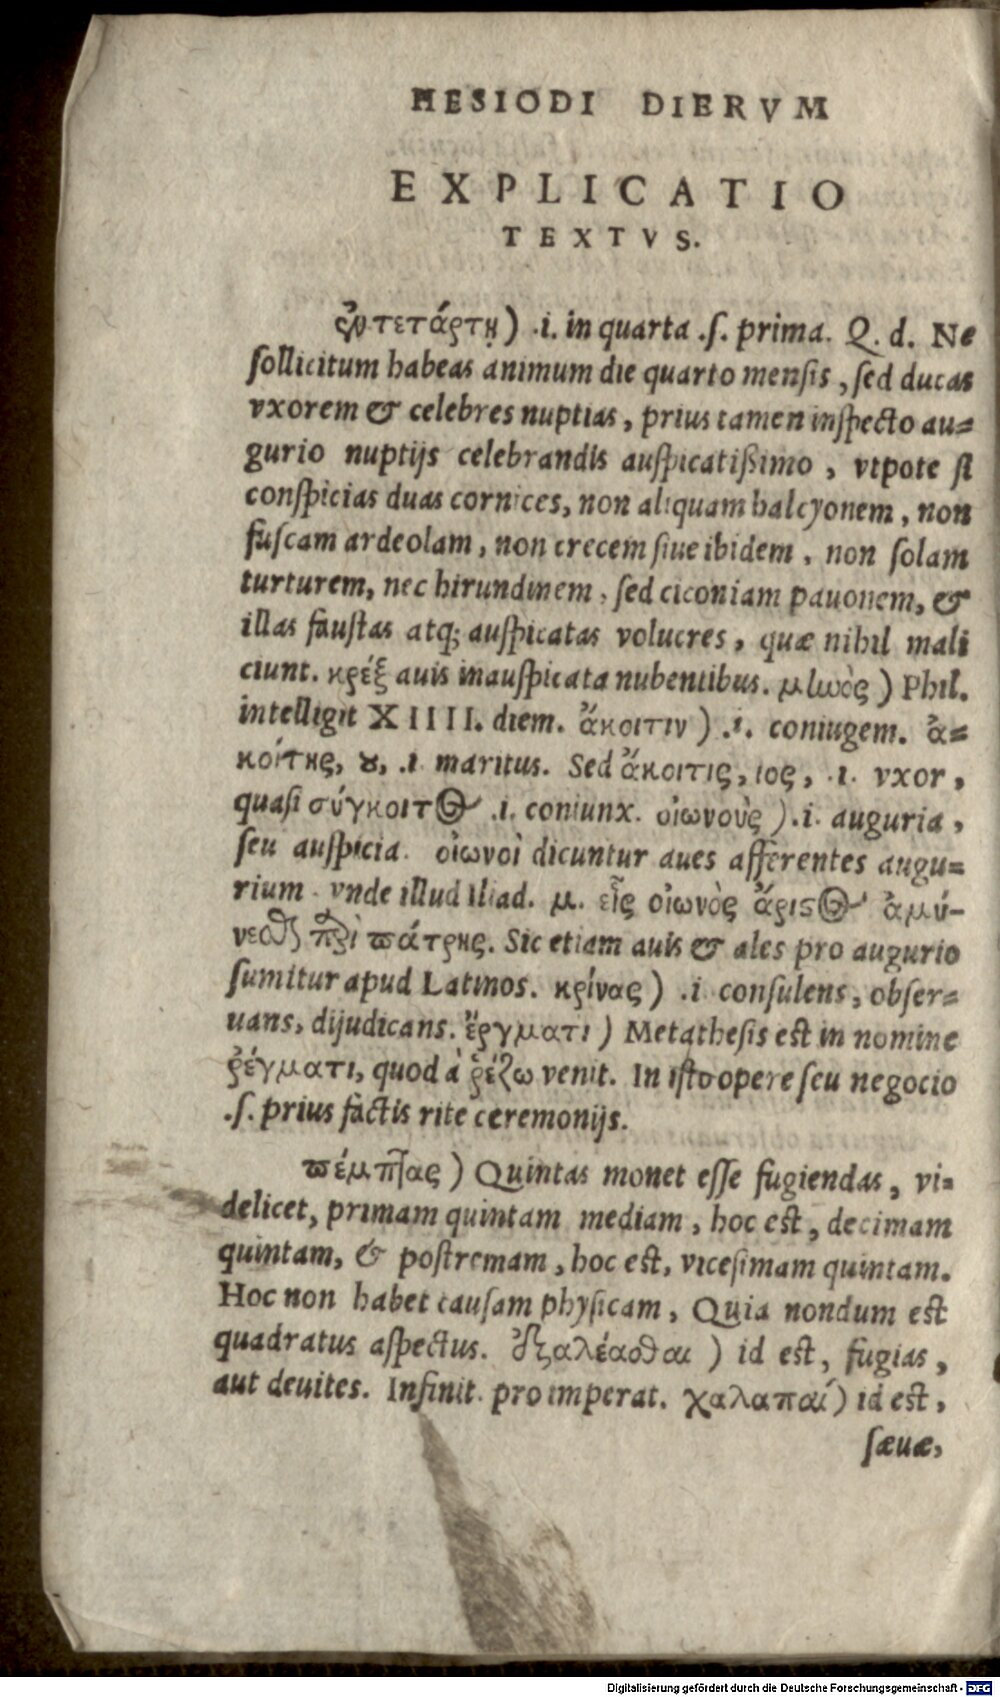 HESIODI DIERVM
EXPLICATIO
TEXTVS.
ἐν τετάρτῃ) .i. in quarta .ſ. prima. Q. d. Ne
ſollicitum habeas animum die quarto menſis, ſed ducas
vxorem & celebres nuptias, prius tamen inſpecto au=
gurio nuptijs celebrandis auſpicatißimo, vtpote ſi
conſpicias duas cornices, non aliquam halcyonem, non
fuſcam ardeolam, non crecem ſiue ibidem, non ſolam
turturem, nec hirundinem, ſed ciconiam pauonem, &
illas fauſtas atq; auſpicatas volucres, quæ nihil mali
ciunt. κρέξ auis inauſpicata nubentibus. μηνὸς) Phil.
intelligit XIIII. diem. ἄκοιτιν) .i. coniugem. ἀ=
κοίτης, ȣ, .i. maritus. Sed ἄκοιτις, ιος, .i. vxor,
quaſi σύγκοιτος .i. coniunx. οἰωνοὺς) .i. auguria,
ſeu auſpicia. οἰωνοὶ dicuntur aues afferentes augu=
rium. vnde illud Iliad. μ. εἷς οἰωνὸς ἄριϛος ἀμύ-
νεσθαι περὶ πάτρης. Sic etiam auis & ales pro augurio
ſumitur apud Latinos. κρίνας) .i. conſulens, obſer=
uans, dijudicans. ἔργματι) Metatheſis est in nomine
ῥέγματι, quod à ῥέζω venit. In iſto opere ſeu negocio
.ſ. prius factis rite ceremonijs.
πέμπτας) Quintas monet eſſe fugiendas, vi=
delicet, primam quintam mediam, hoc est, decimam
quintam, & poſtremam, hoc est, viceſimam quintam.
Hoc non habet cauſam phyſicam, Quia nondum est
quadratus aſpectus. ἐξαλέασθαι) id est, fugias,
aut deuites. Infinit. pro imperat. χαλαπαί) id est,
ſæuæ,
Digitalisierung gefördert durch die Deutsche Forschungsgemeinschaft - DFG